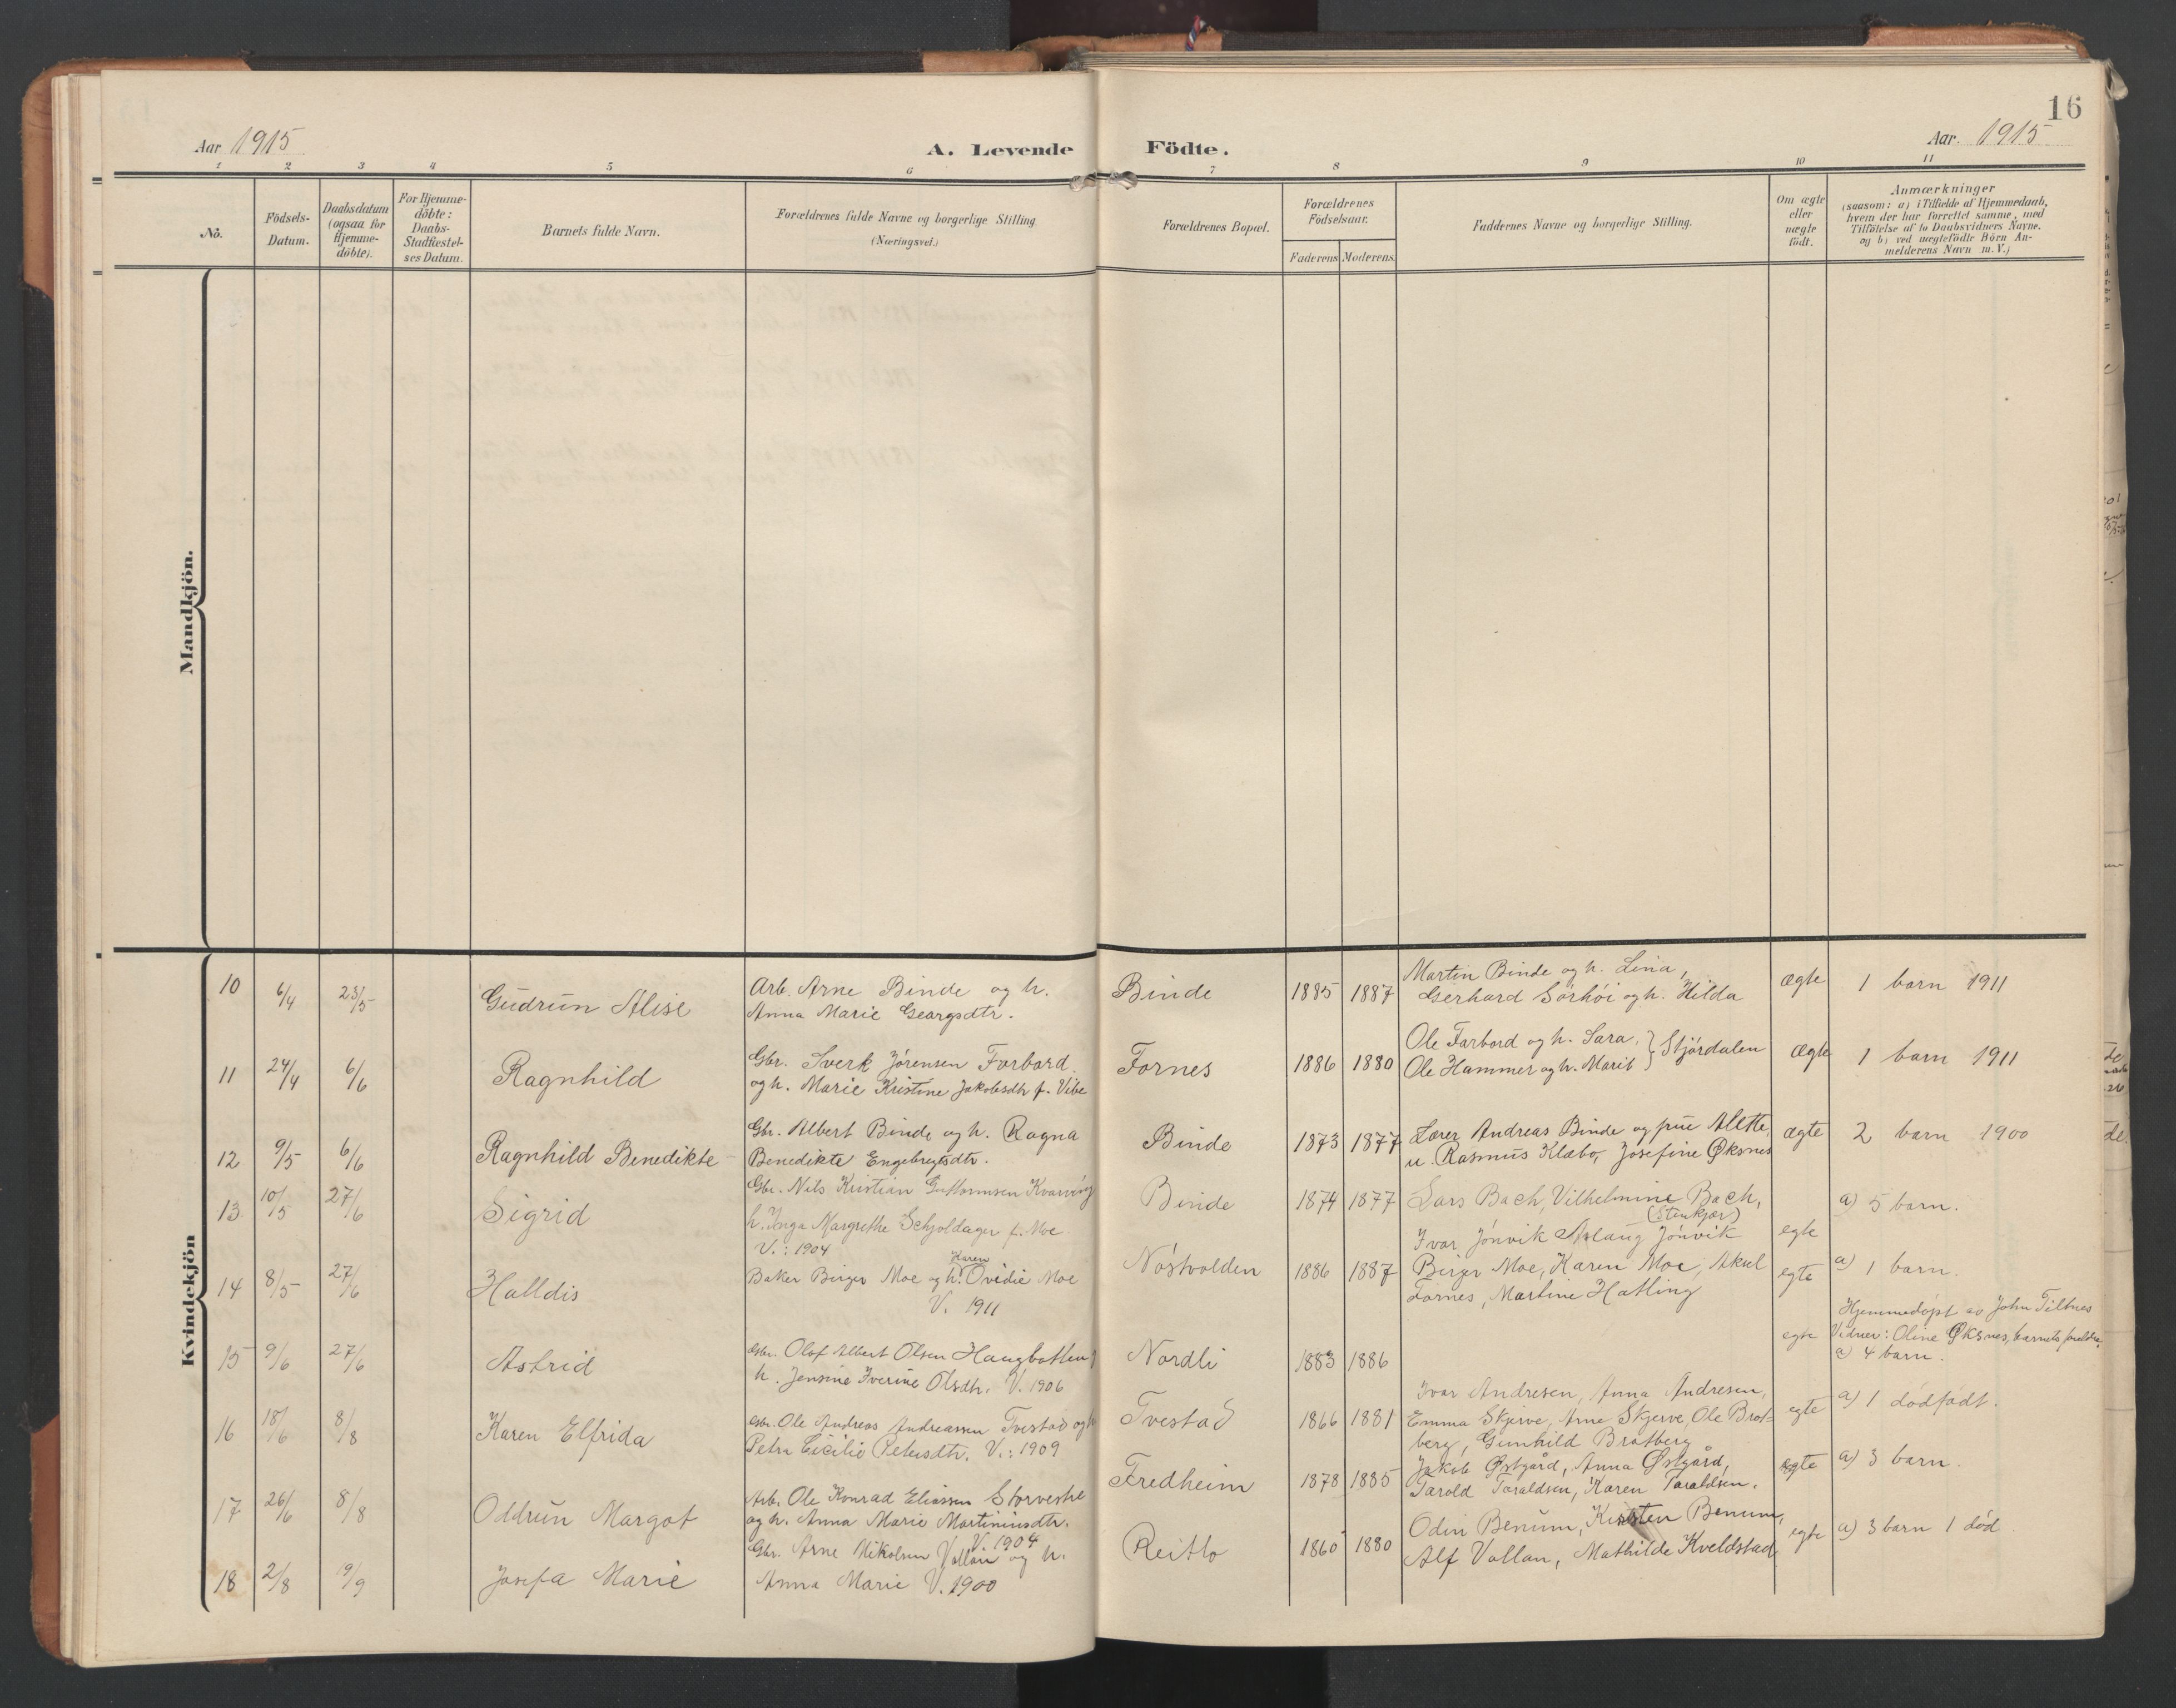 16
Aar 1915
A. Levende
Födte.
Aar. 1915
1 2 3 4 5 6 7 8 9 10 11
No.
Födsels-
Datum.
Daabsdatum
(ogsaa for
Hjemme-
döbte).
For Hjemme-
döbte:
Daabs-
Stadfæstel-
ses Datum.
Barnets fulde Navn.
Forældrenes fulde Navne og borgerlige Stilling
(Næringsvei.)
Forældrenes Bopæl.
Forældrenes
Födselsaar.
Faderens Moderens
Faddernes Navne og borgerlige Stilling.
Om ægte
eller
uægte
födt.
Anmærkninger
(saasom: a) i Tilfælde af Hjemmedaab,
hvem der har forrettet samme, med
Tilföielse af to Daabsvidners Navne.
og b) ved uægtefödte Börn An-
melderens Navn m. V.)
Mandkjön.
Kvindekjön
10 6/4 23/5 Gudrun Alise
Arb. Arne Binde og h.
Anna Marie Georgsdtr.
Binde 1885 1887
Martin Binde og h. Lina,
Gerhard Sörhöi og h. Hilda
ægte 1 barn 1911
11 24/4 6/6 Ragnhild
Gbr. Sverk Jörensen Forbord
og h. Marie Kristine Jakobsdtr f. Vibe
Fornes 1886 1880
Ole Farbord og h. Sara,
Ole Hammer og h. Marit } Stjördalen
ægte 1 barn 1911
12 9/5 6/6 Ragnhild Benedikte
Gbr. Albert Binde og h. Ragna
Benedikte Engebregtsdtr.
Binde 1873 1877
Lærer Andreas Binde og frue Alette,
u. Rasmus Klæbo, Josefine Øksnes
ægte 2 barn 1900
13 10/5 27/6 Sigrid
Gbr. Nils Kristian Guttormsen Kvarving
h. Inga Margrethe Schjoldager f. Moe
V.: 1904
Binde 1874 1877
Lars Bach, Vilhelmine Bach,
(Stenkjær)
Ivar Jönvik Aslaug Jönvik
egte a) 5 barn.
14 8/5 27/6 Halldis
Baker Birger Moe og h. Karen Ovidie Moe
V. 1911
Nöstvolden 1886 1887
Birger Moe, Karen Moe, Aksel
Fornes, Martine Hatling
egte a) 1 barn.
15 9/6 27/6 Astrid
Gbr. Olaf Albert Olsen Haugbotten
h. Jensine Iverine Olsdtr. V. 1906
Nordli 1883 1886
egte Hjemmedöpt av John Tiltnes
Vidner: Oline Øksnes, barnets foreldre.
a) 4 barn.
16 18/6 8/8 Karen Elfrida
Gbr. Ole Andreas Andreassen Tvestad og h
Petra Cicilie Petersdtr. V.: 1909
Tvestad 1866 1881
Ivar Andresen, Anna Andresen,
Emma Skjerve, Arne Skjerve, Ole Brat-
berg, Gunhild Bratberg
egte a) 1 dödfödt.
17 26/6 8/8 Oddrun Margot
Arb. Ole Konrad Eliassen Storvestre
og h. Anna Marie Martiniusdtr.
V. 1904
Fredheim 1878 1885
Jakob Østgård, Anna Østgård,
Tarald Taraldsen, Karen Taraldsen.
egte a) 3 barn.
18 2/8 19/9 Josefa Marie
Gbr. Arne Nikolsen Vollan og h.
Anna Marie V. 1900
Reitlo 1860 1880
Odin Benum, Kirsten Benum,
Alf Vollan, Mathilde Kveldstad
egte a) 3 barn 1 död.